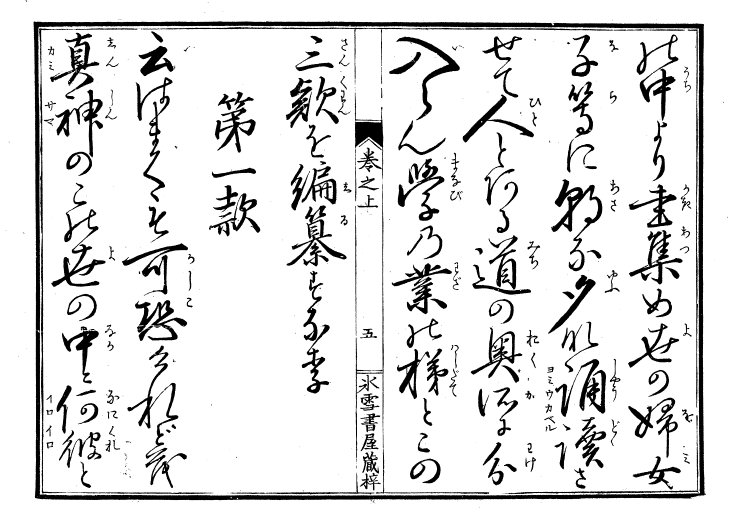 能中より書集め世の婦女
子等に朝な夕な誦讀さ
せて人とある道の奥所に分
入らん學乃業能梯とこの
巻之上
五
氷雪書屋蔵梓
三款を編纂すなり
第一款
云はまくも可恐けれど茂
真神のこ能世の中に何彼と